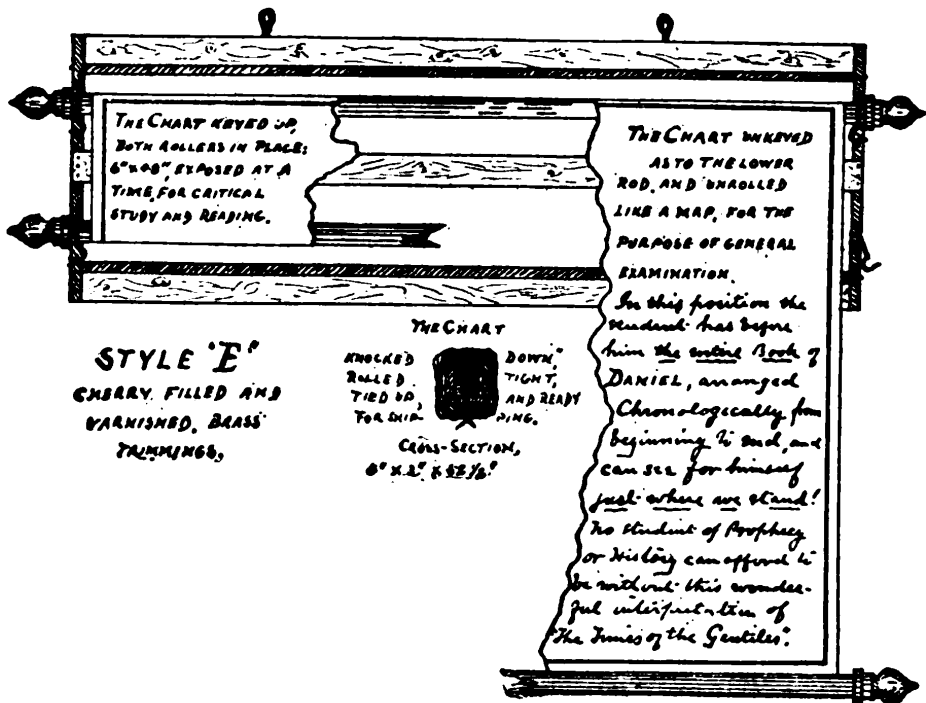 THE CHART KEYED UP,
BOTH ROLLERS IN PLACE;
6"x48", EXPOSED AT A
TIME, FOR CRITICAL
STUDY AND READING.
THE CHART UNKEYED
AS TO THE LOWER
ROD, AND UNROLLED
LIKE A MAP, FOR THE
PURPOSE OF GENERAL
EXAMINATION.
In this position the
student has before
him the entire Book of
DANIEL, arranged
Chronologically from
beginning to end, and
can see for himself
just where we stand!
No student of Prophecy
or History can afford to
be without this wonder-
ful interpretation of
"The Times of the Gentiles".
STYLE "E"
CHERRY FILLED AND
VARNISHED, BRASS
TRIMMINGS,
THE CHART
KNOCKED DOWN,"
ROLLED TIGHT,
TIED UP, AND READY
FOR SHIP PING.
CROSS-SECTION,